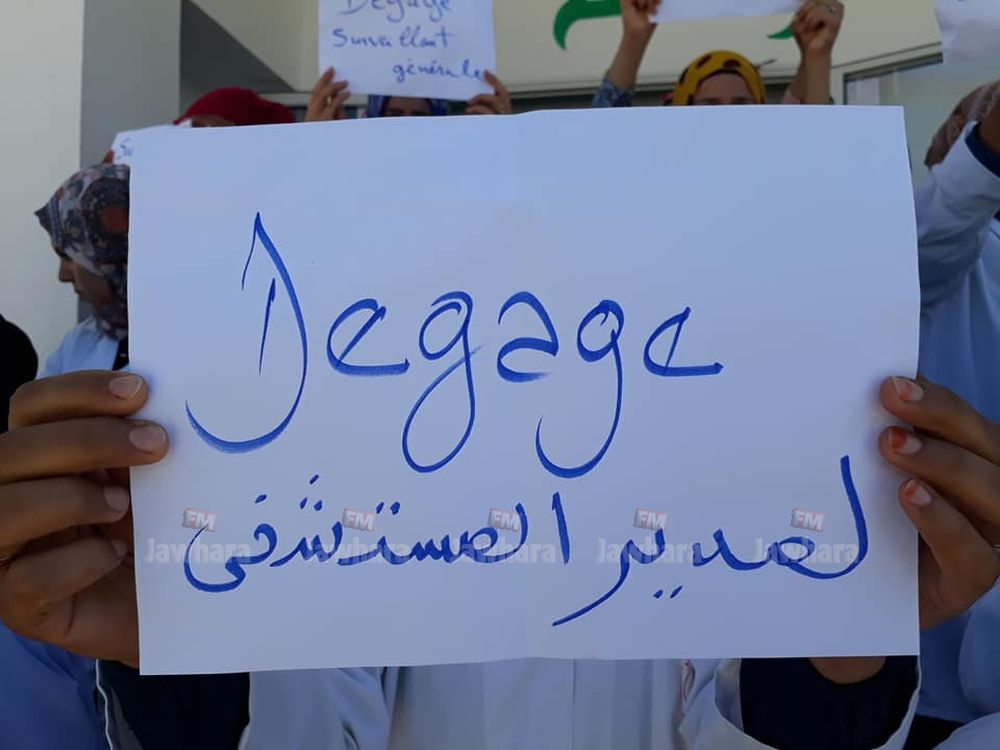 Dégage
Surveillant
générale
Su
Degage
لمدير المستشفى
FM FM FM FM FM
Jawhara Jawhara Jawhara Jawhara Jawhara